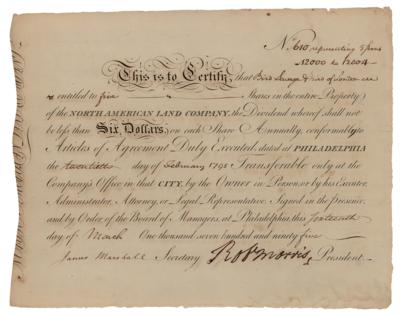 No. 610 representing 5 shares
12000 to 12004
This is to Certify, that Bird Savage & Bird of London are
entitled to five Shares in the entire Property
of the NORTH AMERICAN LAND COMPANY, the Dividend whereof shall not
be less than Six Dollars, on each Share Annually, conformably to
Articles of Agreement Duly Executed, dated at PHILADELPHIA
the twentieth day of February 1795 Transferable only at the
Company's Office in that CITY, by the Owner in Person, or by his Executor,
Administrator, Attorney, or Legal Representative. Signed in the presence
and by Order of the Board of Managers, at Philadelphia, this
day of March One thousand seven hundred and ninety five
James Marshall Secretary Robt Morris President